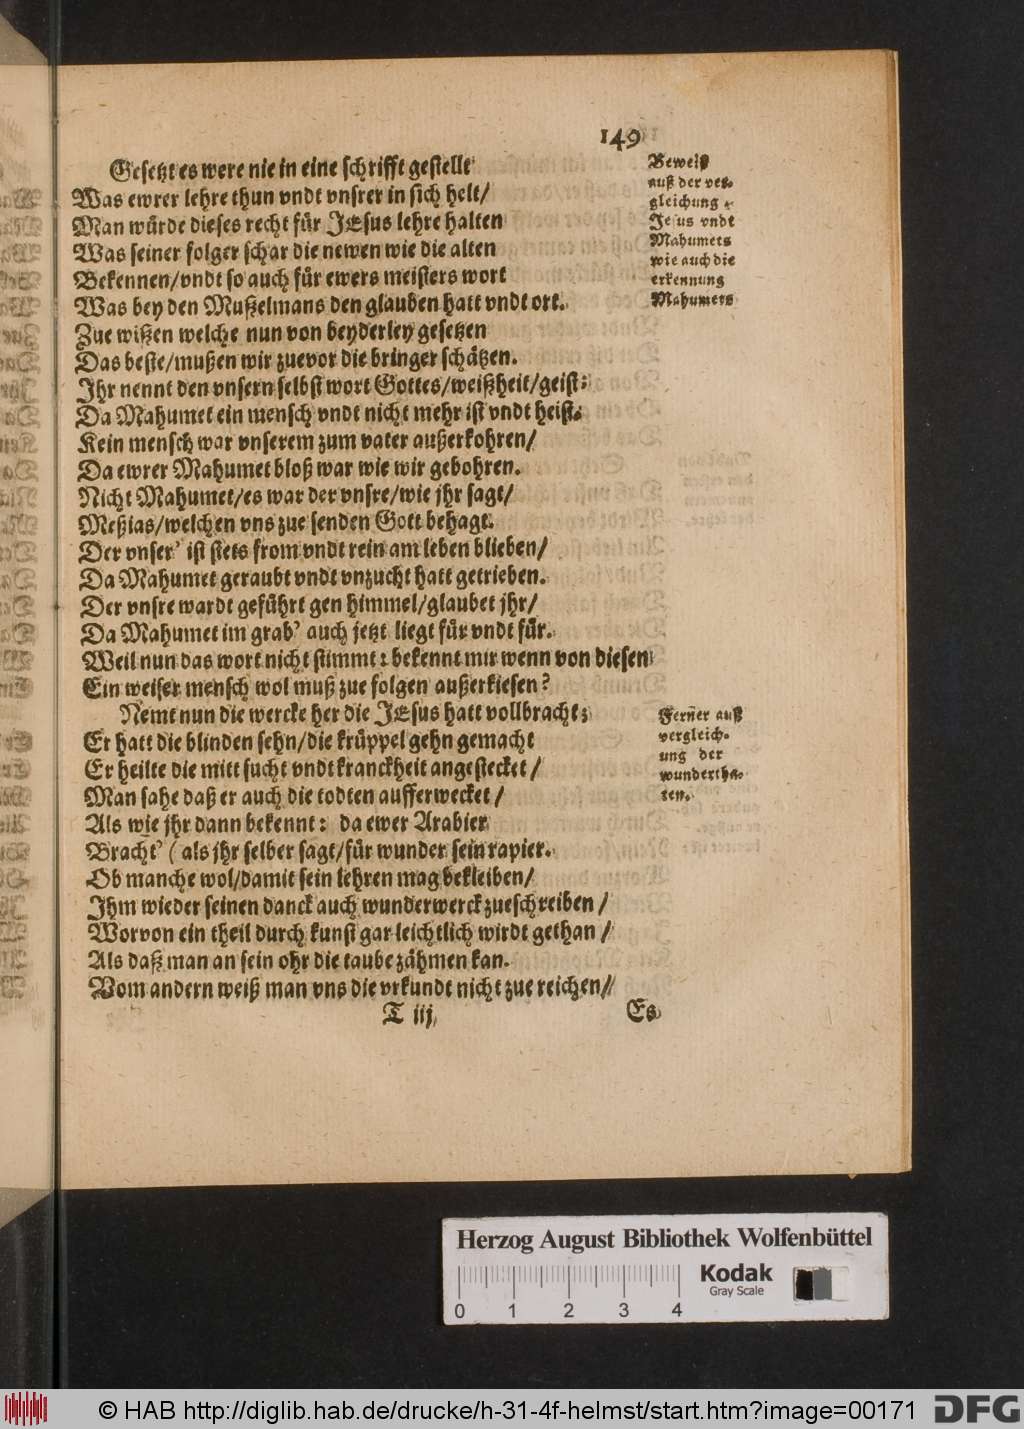 149
Gesetzt es were nie in eine schrifft gestellt
Was ewrer lehre thun vndt vnsrer in sich helt/
Man würde dieses recht für JEsus lehre halten
Was seiner folger schar die newen wie die alten
Bekennen/vndt so auch für ewers meisters wort
Was bey den Mußelmans den glauben hatt vndt ort.
Zue wißen welche nun von beyderley gesetzen
Das beste/mußen wir zuevor die bringer schätzen.
Jhr nennt den vnsern selbst wort Gottes/weißheit/geist:
Da Mahumet ein mensch vndt nicht mehr ist vndt heist.
Kein mensch war vnserem zum vater außerkohren/
Da ewrer Mahumet bloß war wie wir gebohren.
Nicht Mahumet/es war der vnsre/wie jhr sagt/
Meßias/welchen vns zue senden Gott behagt.
Der vnser' ist stets from vndt rein am leben blieben/
Da Mahumet geraubt vndt vnzucht hatt getrieben.
Der vnsre wardt geführt gen himmel/glaubet jhr/
Da Mahumet im grab' auch jetzt liegt für vndt für.
Weil nun das wort nicht stimmt: bekennt mir wenn von diesen
Ein weiser mensch wol muß zue folgen außerkiesen?
Nemt nun die wercke her die JEsus hatt vollbracht;
Er hatt die blinden sehn/die krüppel gehn gemacht
Er heilte die mitt sucht vndt kranckheit angestecket/
Man sahe daß er auch die todten aufferwecket/
Als wie jhr dann bekennt: da ewer Arabier
Bracht' (als jhr selber sagt/für wunder sein rapier.
Ob manche wol/damit sein lehren mag bekleiben/
Jhm wieder seinen danck auch wunderwerck zueschreiben/
Worvon ein theil durch kunst gar leichtlich wirdt gethan/
Als daß man an sein ohr die taube zähmen kan.
Vom andern weiß man vns die vrkundt nicht zue reichen/
T iij
Es
Beweiß
auß der ver-
gleichung
Jesus vndt
Mahumets
wie auch die
erkennung
Mahumets
Ferner auß
vergleich-
ung der
wundertha-
ten.
Herzog August Bibliothek Wolfenbüttel
0 1 2 3 4
Kodak
Gray Scale
© HAB http://diglib.hab.de/drucke/h-31-4f-helmst/start.htm?image=00171
DFG